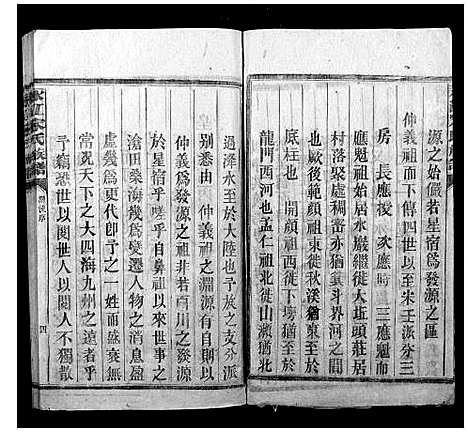 源之始儼若星宿爲發源之區
仲義祖而下傳四世至宋壬派分三
房 長應後 次應時 三應魁而
應魁祖始居水巖繼徙大坵頭莊居
村落聚處稠密亦猶 斗界河之同
也厥後範顏祖東徙秋溪猶東至於
底柱也 開顏祖西徙下塝猶西至於
龍門西河也孟仁祖北徙山瀨猶北
過洚水至於大陸也支分派
别悉由 仲義祖之淵源有自則以
仲義爲發源之祖非若百川之發源
於星宿乎嗟乎自鼻祖以來世事之
滄田桑海幾爲變遷人物之消長盈
虛幾爲更代卽予之一姓而盛衰無
常况天下之大四海九州之遠者乎
予竊恐世以閱世人以閱人不獨散
氏族譜
四